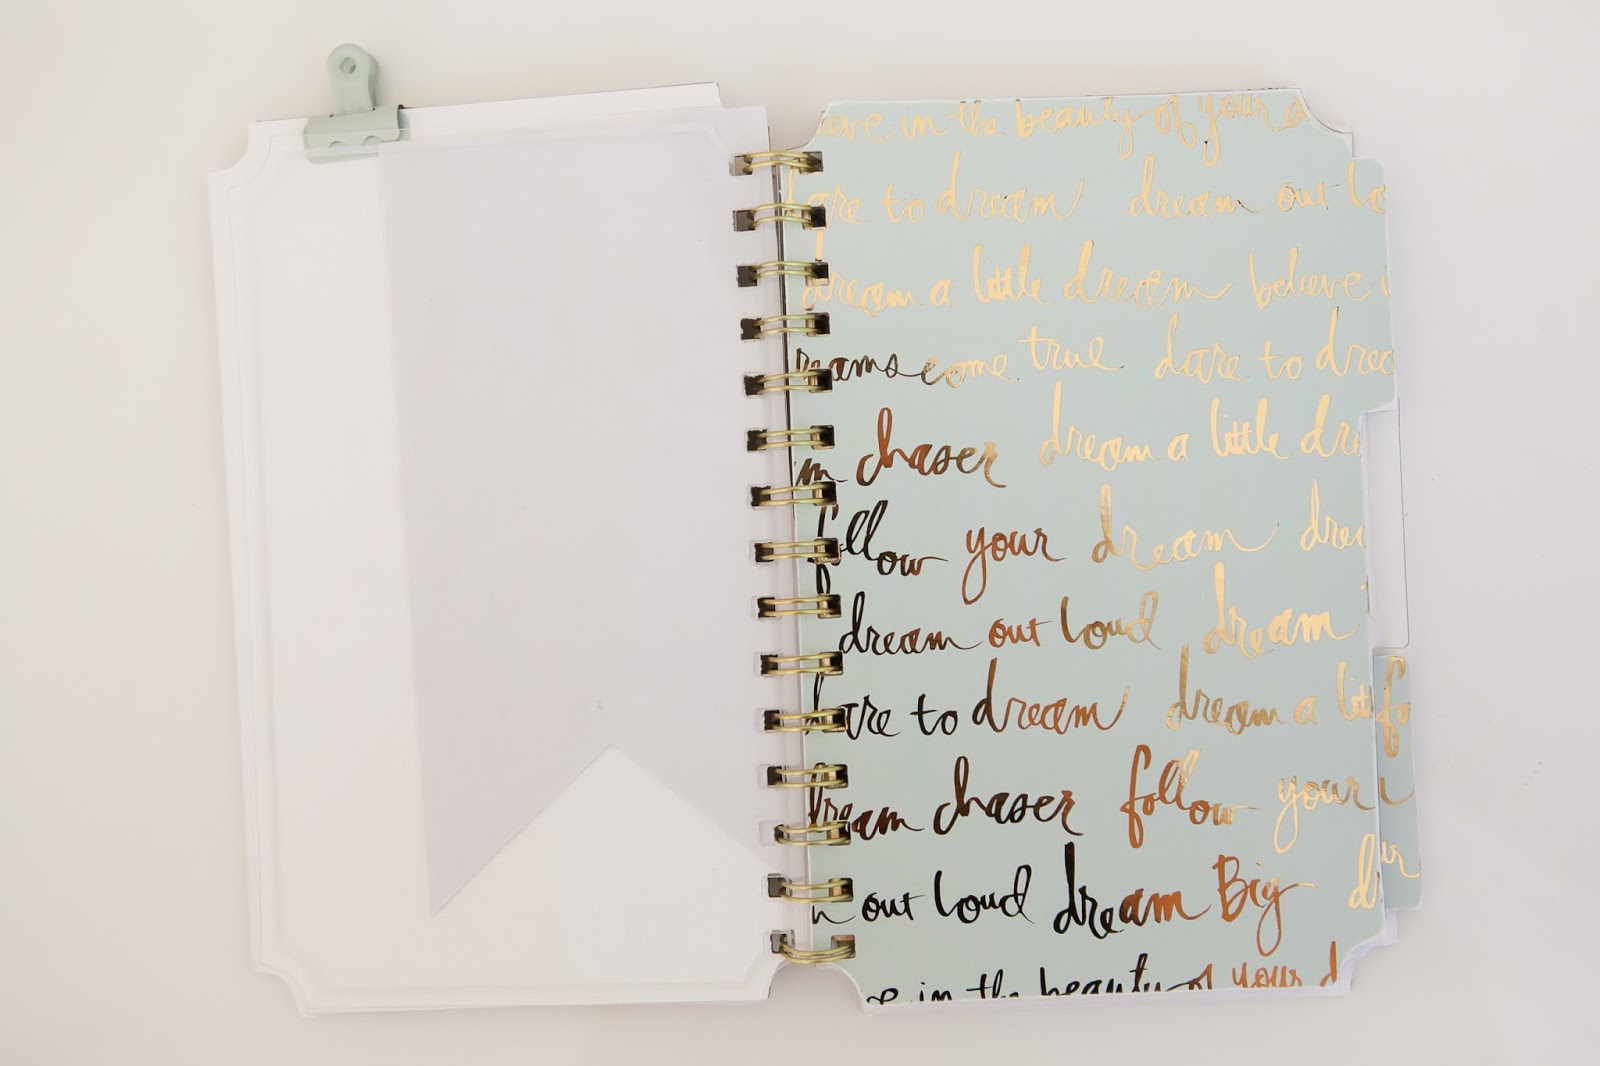 ieve in the beauty of your d
dare to dream dream out lo
dream a little dream believe i
reams come true dare to drea
m chaser dream a little dre
follow your dream drea
dream out loud dream
dare to dream dream a litt fo
dream chaser follow your
n out loud dream Big d ur
ve in the beauty of your d